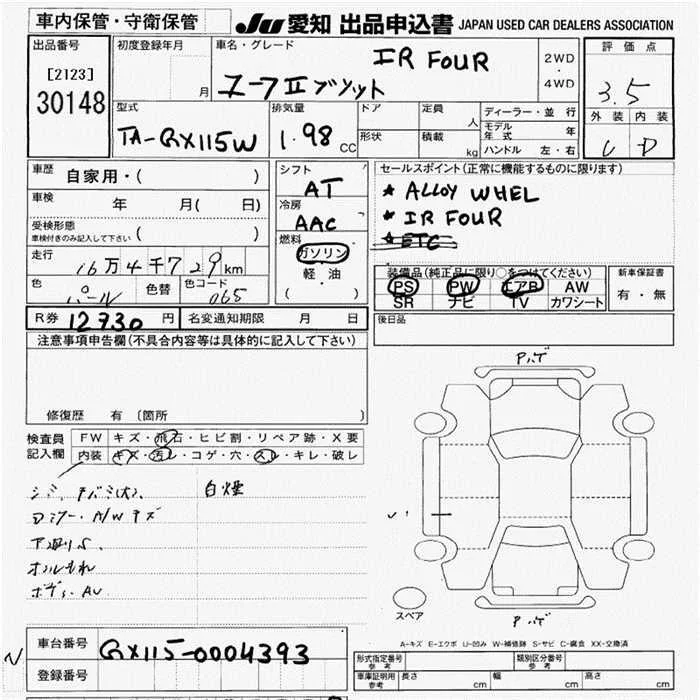 車内保管・守衛保管 JU 愛知 出品申込書 JAPAN USED CAR DEALERS ASSOCIATION
出品番号 初度登録年月 車名・グレード IR FOUR 2WD ・ 4WD 評価点
[2123] 月 3.5
30148 型式 排気量 ドア 定員 人 ディーラー・並 行 外装 内装
TA-GX115W 1.98 CC 形状 積載 kg モデル年式 年 D
ハンドル 左・右
車歴 自家用・( ) シフト AT セールスポイント(正常に機能するものに限ります)
車検 年 月( 日) 冷房 AAC ★ ALLOY WHEL
受検形態 ★ IR FOUR
車検付きのみ記入して下さい ( ) 燃料 ガソリン ★ ETC
走行 16万4千729km 軽・油 装備品(純正品に限り○をつけてください) 新車保証書
色 パール 色替 色コード 065 ( ) PS PW エアB AW 有・無
SR ナビ TV カワシート
R券 12730 円 名変通知期限 月 日 後日品
注意事項申告欄(不具合内容等は具体的に記入して下さい)
修復歴 有 〔箇所
検査員 FW キズ・飛石・ヒビ割・リペア跡・X要
記入欄 内装 キズ・汚レ・コゲ・穴・スレ・キレ・破レ
白煙
A/W キズ
スペア
A-キズ E-エクボ U-凹み W-補修跡 S-サビ C-腐食 XX-交換済
車台番号 GX115-0004393 形式指定番号 参考 類別区分番号 参考
登録番号 車庫証明用 参考 長さ cm 幅 cm 高さ cm